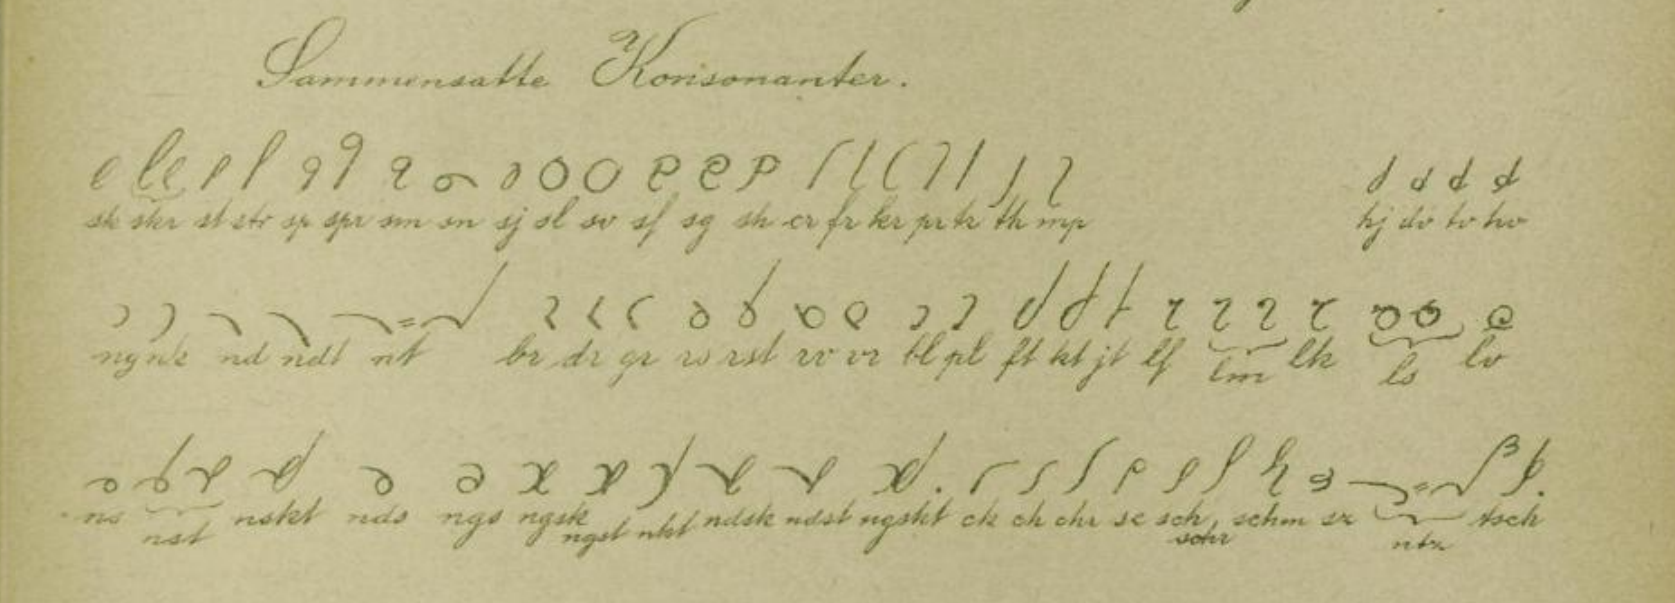 Sammensatte Konsonanter.
sk skr st str sp spr sm sn sj sl sv sf sg sh cr fr kr pr tr th mp hj dv tv hv
ng nk nd ndt nt br dr gr rs rst rv vr bl pl ft kt jt lf lm lk ls lv
ns nst nskt nds ngs ngsk ngst nkt ndsk ndst ngskt ck ch chr sc sch, schr schm sz ntz tsch